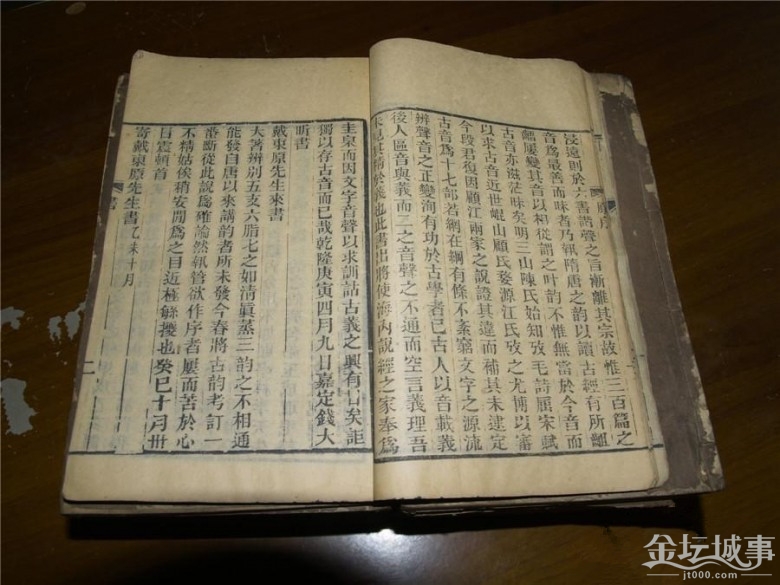 浸遠則於六書諧聲之旨漸離其宗故惟三百篇之
音爲最善而昧者乃執隋唐之韵以讀古經有所齟
齬屢變其音以相從謂之叶韵不惟無當於今音而
古音亦滋茫昧矣明三山陳氏始知攷毛詩屈宋賦
以求古音近世崐山顧氏婺源江氏攷之尤博以審
今段君復因顧江兩家之説證其違而補其未逮定
古音爲十七部若網在綱有條不紊窮文字之源流
辨聲音之正變洵有功於古學者已古人以音載義
後人區音與義而二之音聲之不通而空言義理吾
未見其精於義也此書出將使海内説經之家奉爲
圭臬而因文字音聲以求訓詁古義之興有日矣詎
獨以存古音而已哉乾隆庚寅四月九日嘉定錢大
昕書
戴東原先生來書
大著辨别五支六脂七之如清真蒸三韵之不相通
能發自唐以來講韵者所未發今春將古韵考訂一
番斷從此説爲確論然執管欲作序者屢而苦於心
不精姑俟稍安閒爲之目近極緐擾也癸巳十月卅
日震頓首
寄戴東原先生書乙未十月
書
二
金坛城事
jt000.com